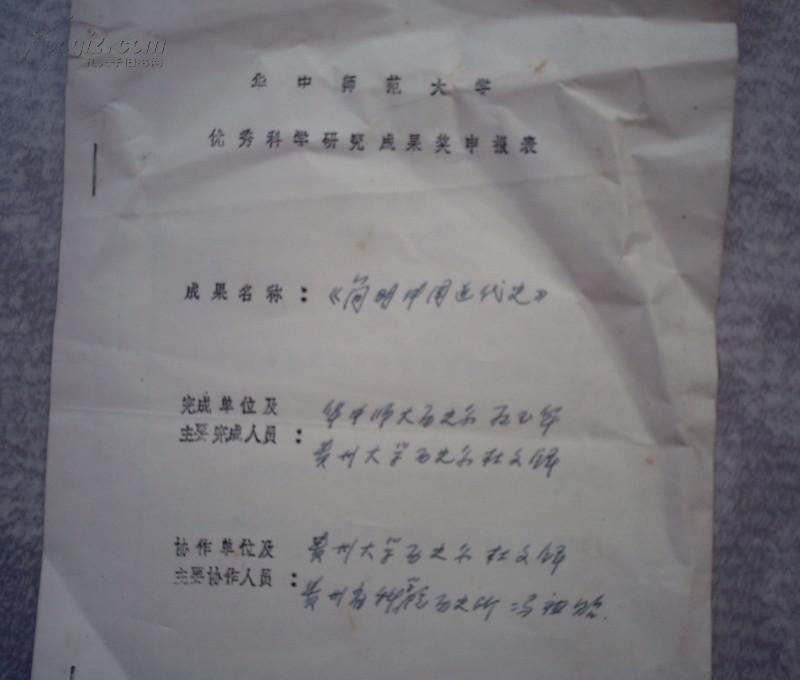 华中师范大学
优秀科学研究成果奖申报表
成果名称：《简明中国近代史》
完成单位及 华中师大历史系
主要完成人员： 贵州大学历史系 杜文铎
协作单位及 贵州大学历史系 杜文铎
主要协作人员： 贵州省科院历史所 冯祖贻